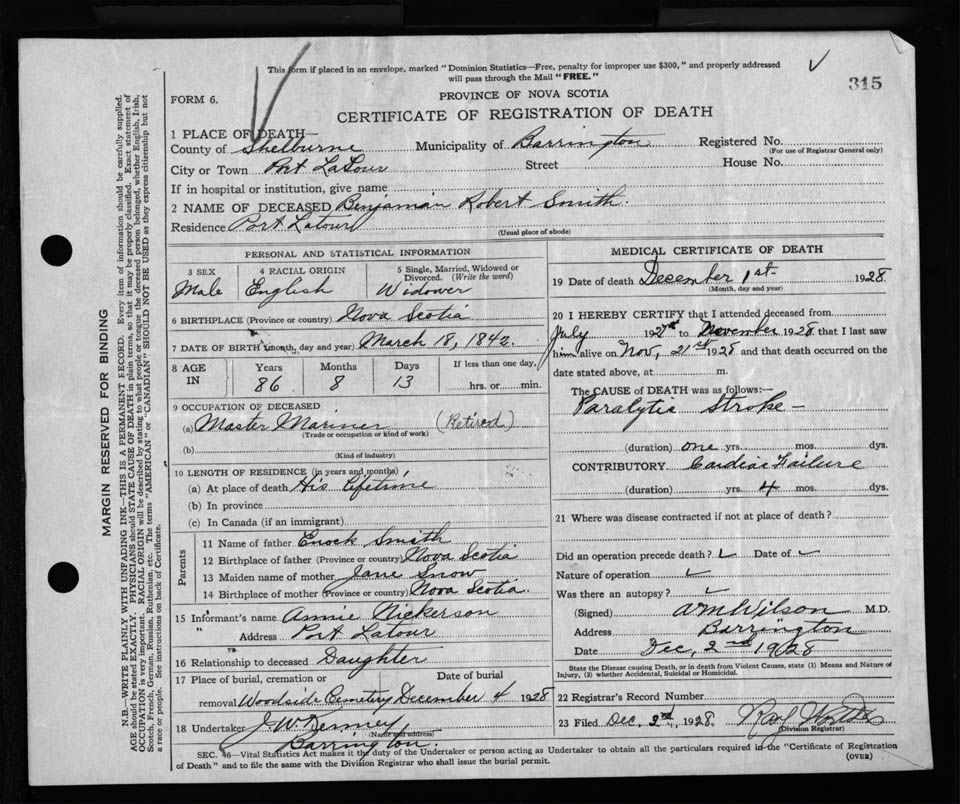 This form if placed in an envelope, marked "Dominion Statistics—Free, penalty for improper use $300," and properly addressed
will pass through the Mail "FREE."
315
FORM 6.
PROVINCE OF NOVA SCOTIA
CERTIFICATE OF REGISTRATION OF DEATH
1 PLACE OF DEATH—
County of Shelburne Municipality of Barrington Registered No.
(For use of Registrar General only)
City or Town Port LaTour Street House No.
If in hospital or institution, give name
2 NAME OF DECEASED Benjaman Robert Smith.
Residence Port Latour
(Usual place of abode)
PERSONAL AND STATISTICAL INFORMATION
3 SEX 4 RACIAL ORIGIN 5 Single, Married, Widowed or Divorced. (Write the word)
Male English Widower
6 BIRTHPLACE (Province or country) Nova Scotia
7 DATE OF BIRTH (month, day and year) March 18, 1842.
8 AGE IN Years Months Days If less than one day,
86 8 13 hrs. or min.
9 OCCUPATION OF DECEASED
(a) Master Mariner (Retired)
(Trade or occupation or kind of work)
(b)
(Kind of industry)
10 LENGTH OF RESIDENCE (in years and months)
(a) At place of death His lifetime
(b) In province
(c) In Canada (if an immigrant)
Parents
11 Name of father Enock Smith
12 Birthplace of father (Province or country) Nova Scotia
13 Maiden name of mother Jane Snow
14 Birthplace of mother (Province or country) Nova Scotia.
15 Informant's name Annie Nickerson
" Address Port Latour
16 Relationship to deceased Daughter
17 Place of burial, cremation or Date of burial
removal Woodside Cemetry December 4 1928
18 Undertaker J. W. Kenney,
(Name and address)
Barrington.
MEDICAL CERTIFICATE OF DEATH
19 Date of death December 1st 1928
(Month, day and year)
20 I HEREBY CERTIFY that I attended deceased from
July 192 to November 1928 that I last saw
him alive on Nov, 21st 1928 and that death occurred on the
date stated above, at m.
The CAUSE of DEATH was as follows:—
Paralytic Stroke —
(duration) one yrs. mos. dys.
CONTRIBUTORY Cardiac Failure
(duration) yrs. 4 mos. dys.
21 Where was disease contracted if not at place of death?
Did an operation precede death? Date of
Nature of operation
Was there an autopsy?
(Signed) AM Wilson M.D.
Address Barrington
Date Dec, 2nd 1928
State the Disease causing Death, or in death from Violent Causes, state (1) Means and Nature of
Injury, (2) whether Accidental, Suicidal or Homicidal.
22 Registrar's Record Number
23 Filed Dec. 2nd, 1928. Ray
(Division Registrar)
SEC. 46—Vital Statistics Act makes it the duty of the Undertaker or person acting as Undertaker to obtain all the particulars required in the "Certificate of Registration
of Death" and to file the same with the Division Registrar who shall issue the burial permit.
(OVER)
MARGIN RESERVED FOR BINDING
N.B.—WRITE PLAINLY WITH UNFADING INK—THIS IS A PERMANENT RECORD. Every item of information should be carefully supplied.
AGE should be stated EXACTLY. PHYSICIANS should STATE CAUSE OF DEATH in plain terms, so that it may be properly classified. Exact statement of
OCCUPATION is very important. RACIAL ORIGIN will be described by stating to what people or tongue the deceased person belonged, whether English, Irish,
Scotch, French, German, Russian, Ruthenian, etc. The terms "AMERICAN" or "CANADIAN" SHOULD NOT BE USED as they express citizenship but not
a race or people. See instructions on back of Certificate.